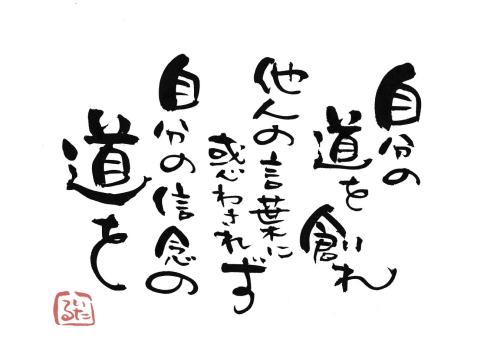 自分の
道を
創れ
他人の言葉に
惑わされず
自分の信念の
道を